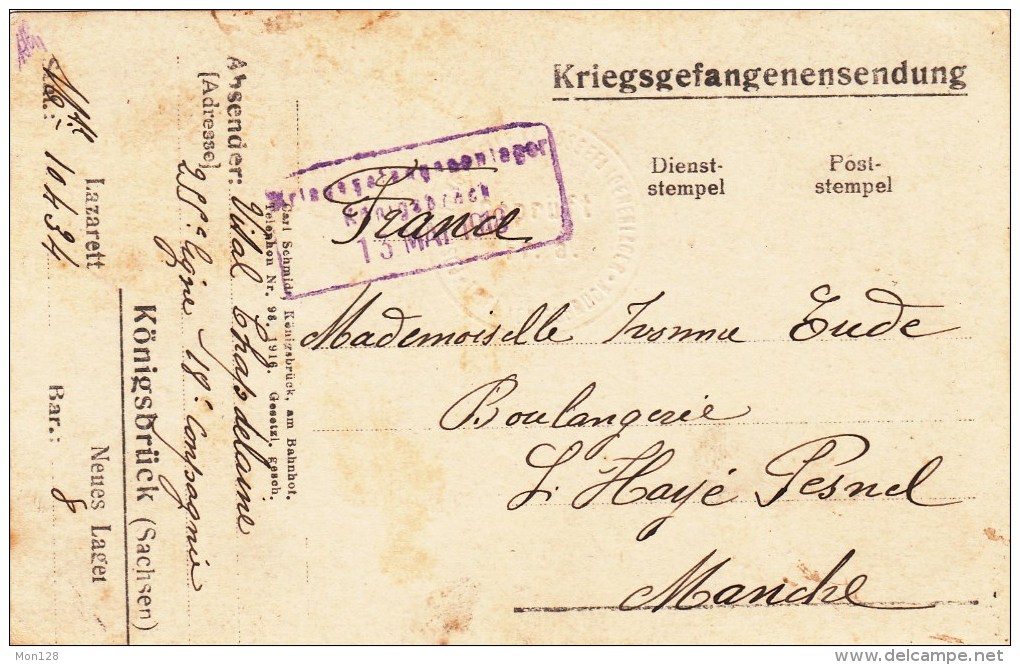 Kriegsgefangenensendung
Dienst-
stempel
Post-
stempel
Kriegsgefangenenlager
Königsbrück
13 MAI 1916
France
Mademoiselle Yvonne Eude
Boulangerie
La Haye Pesnel
Manche
Absender: Vital Chapdelaine
[Adresse]
Ligne 18e Compagnie
10434
Lazarett
Neues Lager
Bar.: 8
Königsbrück (Sachsen)
Carl Schmidt, Königsbrück, am Bahnhof,
Telephon Nr. 98. 1916. Gesetzl. gesch.
Mon128
delcampe.net